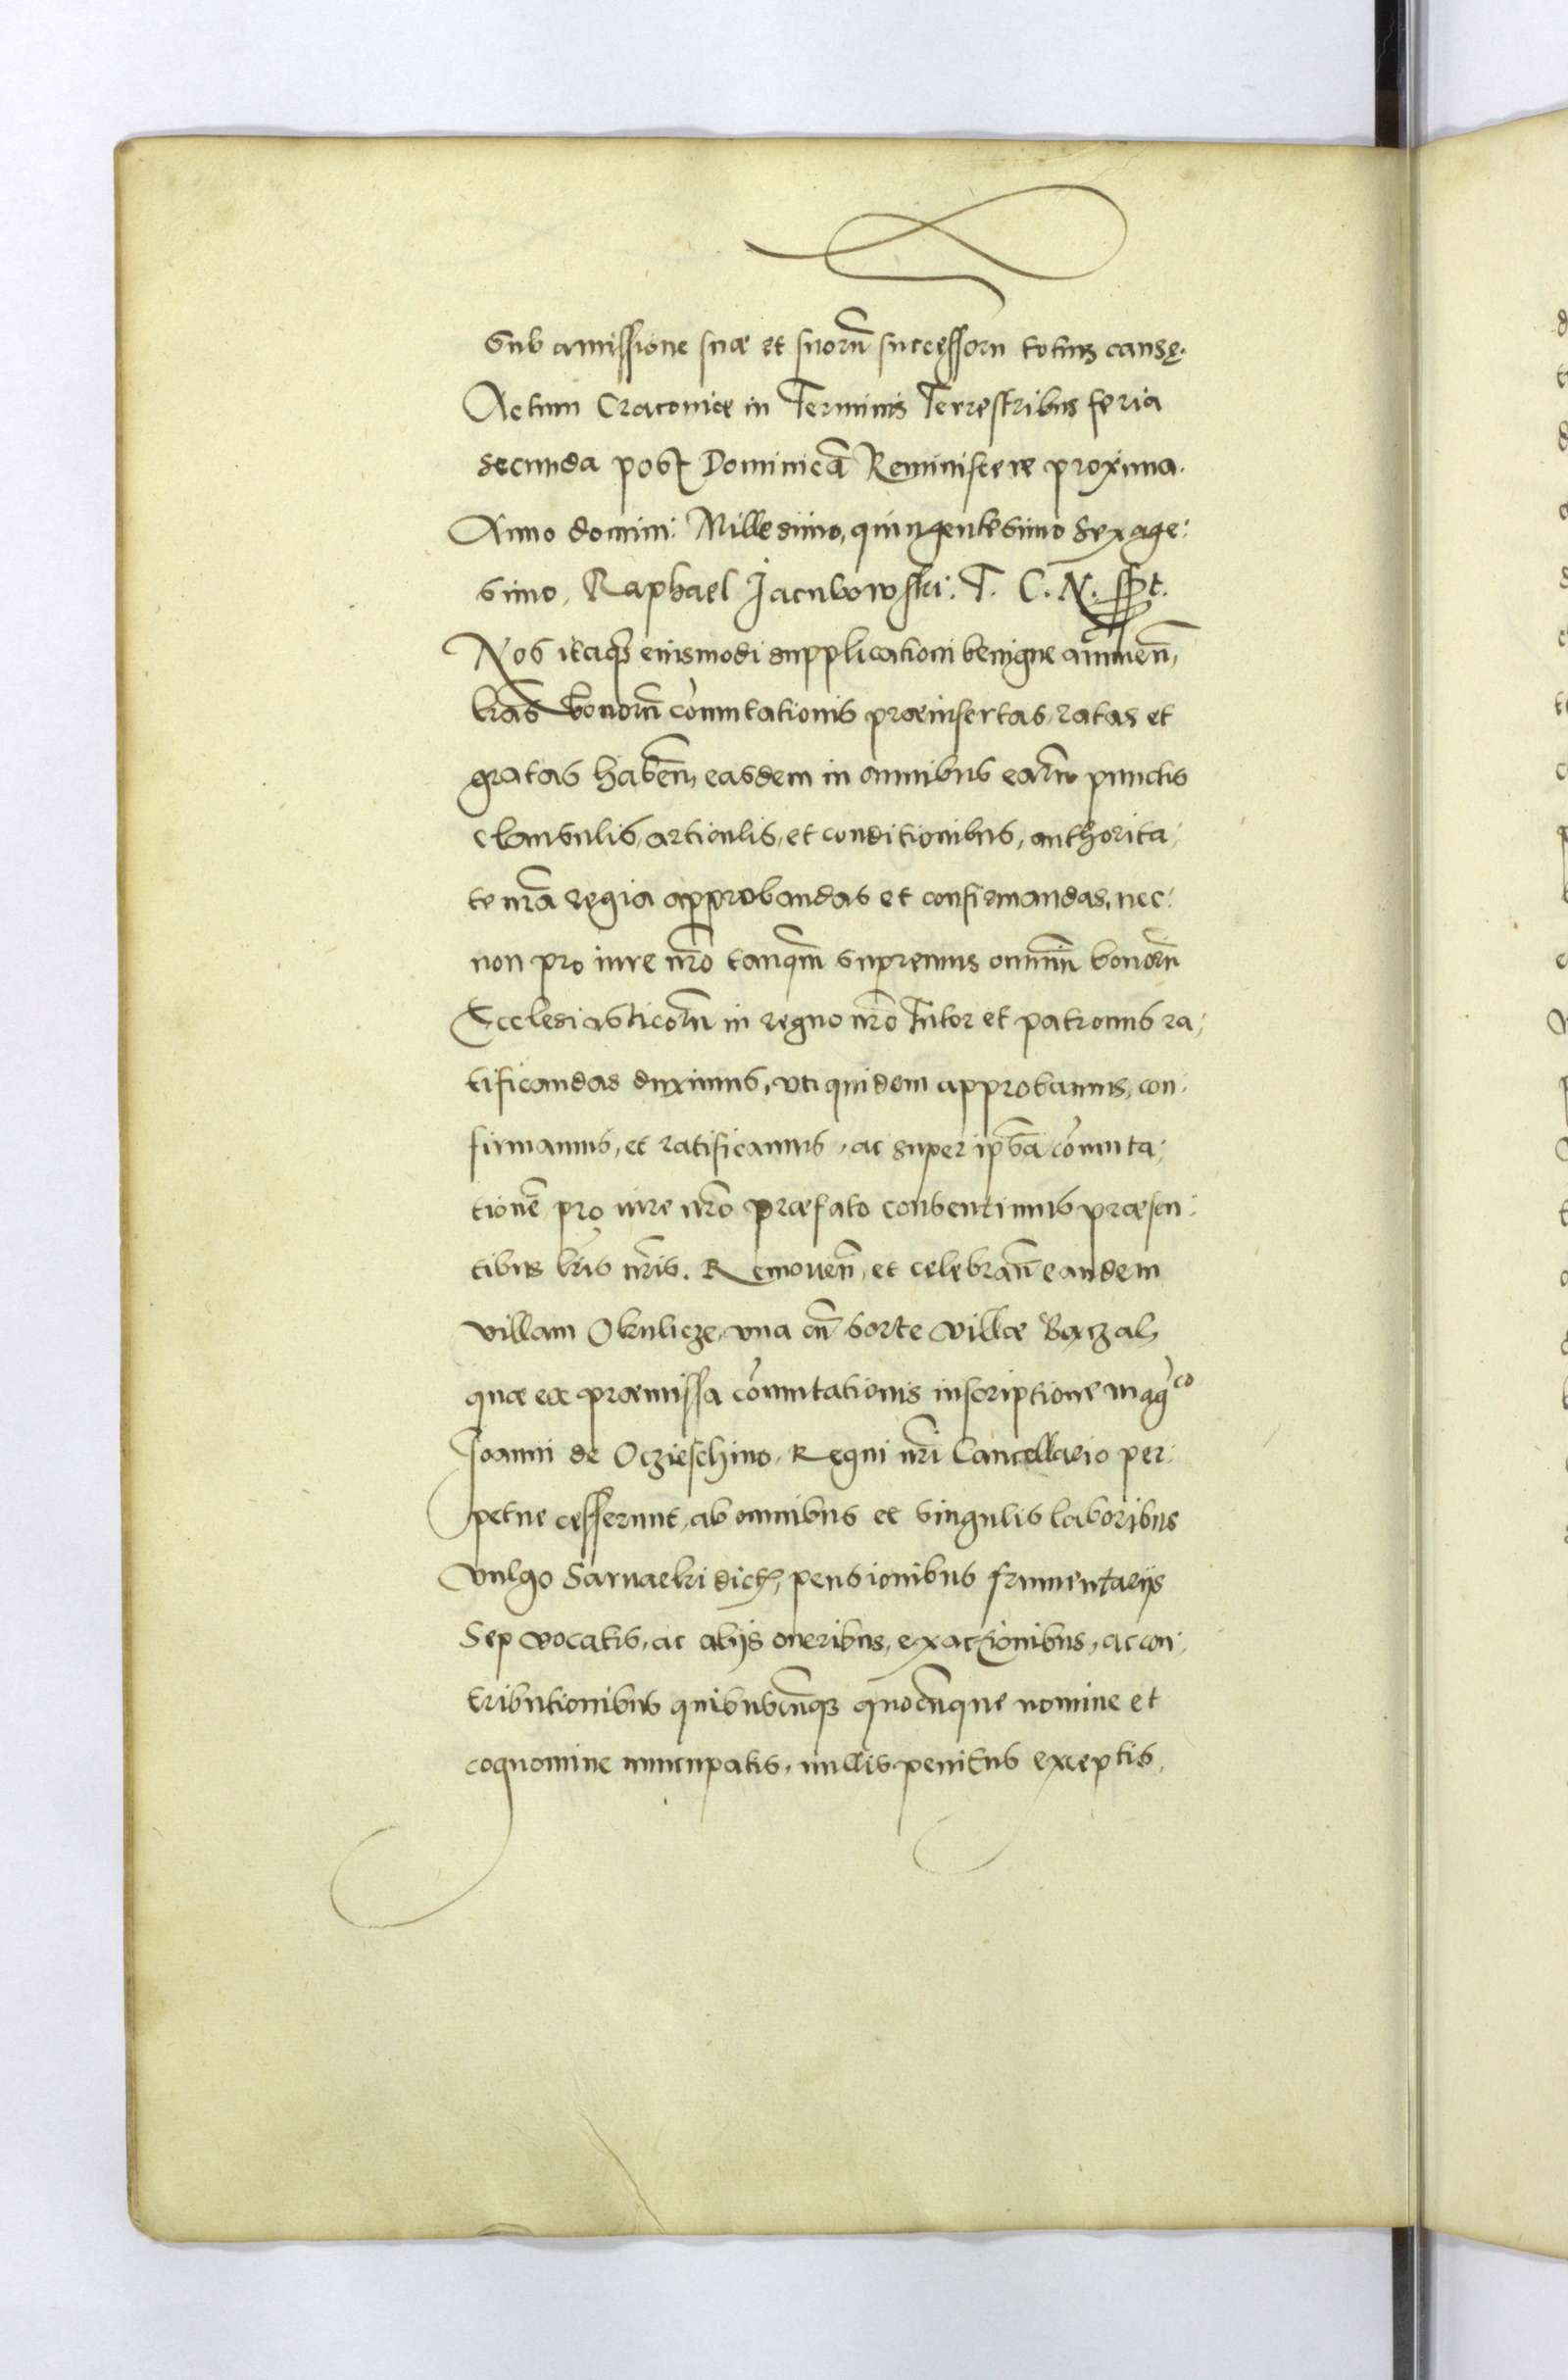 Sub amissione suæ et suorū successorū totius causę.
Actum Cracoviæ in Terminis Terrestribus feria
secunda post Dominicā Reminiscere proxima.
Anno domini: Millesimo, quingentesimo Sexage:
simo, Raphael Jacubowski. T. C. N. sst.
Nos itaqꝫ eiusmodi supplicationi benigne annuen̄,
lr̄as bonorū com̄utationis præinsertas, ratas et
gratas haben̄, easdem in omnibus earū punctis
clausulis, articulis, et conditionibus, authorita:
te nr̄a regia approbandas et confirmandas, nec:
non pro iure nr̄o tanqm̄ supremus omniū bonorū
Ecclesiasticorū in regno nr̄o Tutor et patronus ra:
tificandas duximus, vti quidem approbamus, con:
firmamus, et ratificamus, ac super ip̄sā com̄uta:
tionē pro iure nr̄o præfato consentimus præsen:
tibus lr̄is nr̄is. Remouen̄, et celebran̄ eandem
villam Okulicze, vna cū sorte villæ Baczal,
quæ ex præmissa com̄utationis inscriptione mag̃co
Joanni de Oczieschino, Regni nr̄i Cancellario per:
petue cesserunt, ab omnibus et singulis laboribus
vulgo Sarvaeki dict, pensionibus frumentarijs
Sep vocatis, ac alijs oneribus, exactionibus, ac con:
tributionibus quibuscūqꝫ quocūnque nomine et
cognomine nuncupatis, nullis penitus exceptis,